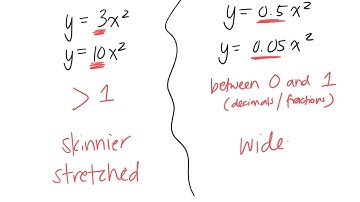 y = 3x²
y = 10x²
> 1
skinnier
stretched
y = 0.5x²
y = 0.05x²
between 0 and 1
(decimals/fractions)
wide